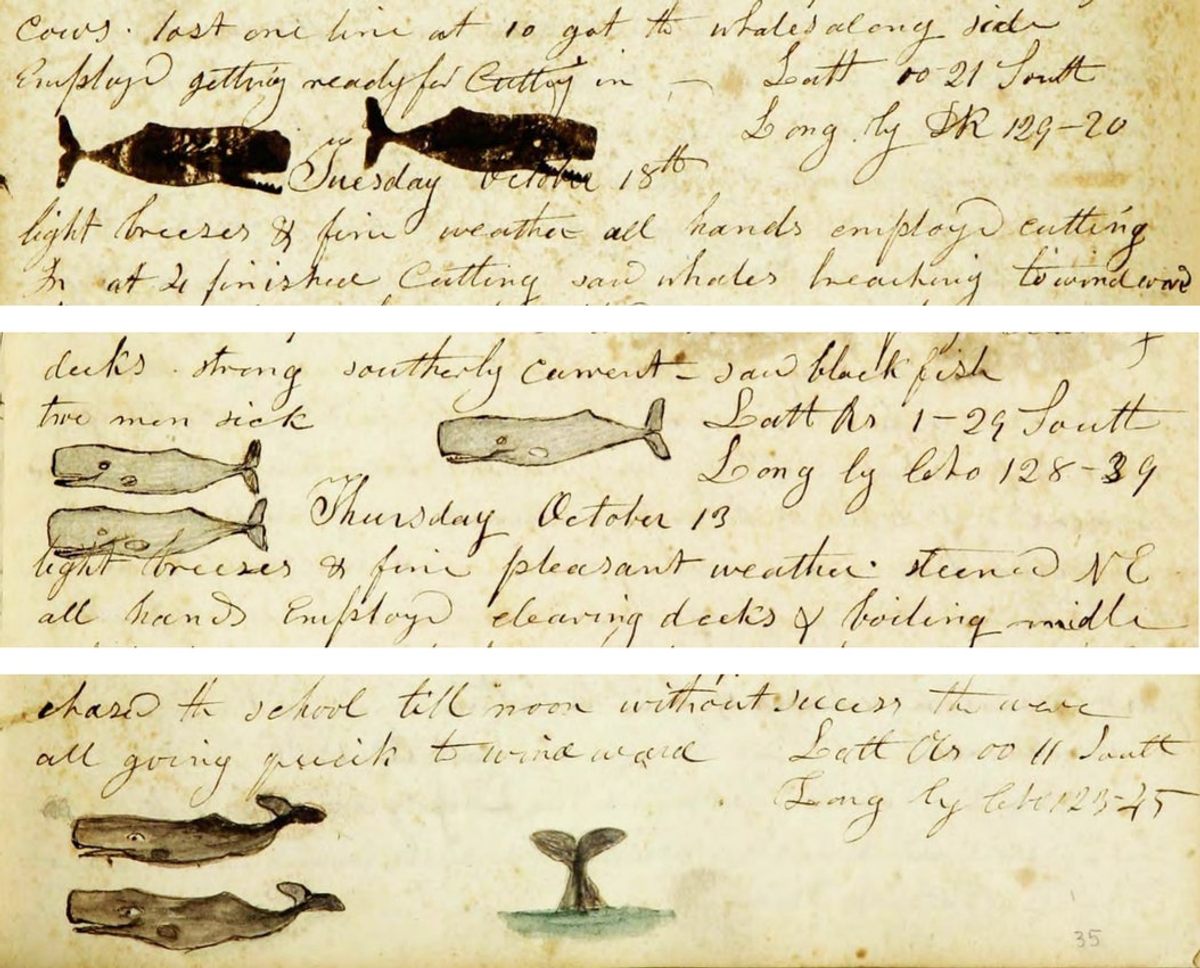 cows. lost one line at 10 got th whales along side
Employd getting ready for Cutting in — Latt 00-21 South
Long by DR 129-20
Tuesday October 18th
light breezes & fine weather all hands employd cutting
In at 4 finished Cutting saw whales breaching to windward
decks. strong southerly current - saw black fish
two men sick Latt Obs 1-29 South
Long by 128-39
Thursday October 13
light breezes & fine pleasant weather. steered NE
all hands Employd clearing decks & boiling midle
chased th school till noon without success the were
all going quick to windward Latt Obs 00 11 South
Long by
35